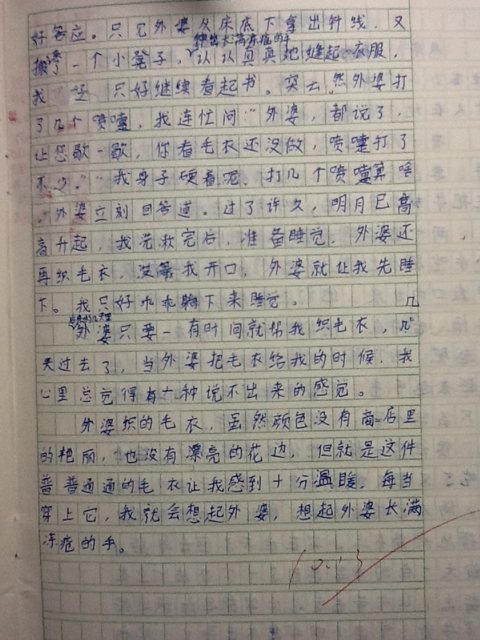 好答应。只见外婆从床底下拿出针线，又
伸出长满冻疮的手
搬了一个小凳子，认认真真地缝起衣服，
我 只好继续看起书。突 然外婆打
了几个喷嚏，我连忙问“外婆，都说了，
让您歇一歇，你看毛衣还没做，喷嚏打了
不少。”“我身子硬着呢，打几个喷嚏算啥
。”外婆立刻回答道。过了许久，明月已高
高升起，我洗漱完后，准备睡觉，外婆还
再织毛衣，没等我开口，外婆就让我先睡
下。我只好乖乖躺下来睡觉。
外婆只要一有时间就帮我织毛衣，几
天过去了，当外婆把毛衣给我的时候，我
心里总觉得有一种说不出来的感觉。
外婆织的毛衣，虽然颜色没有商店里
的艳丽，也没有漂亮的花边，但就是这件
普普通通的毛衣让我感到十分温暖。每当
穿上它，我就会想起外婆，想起外婆长满
冻疮的手。
10.13